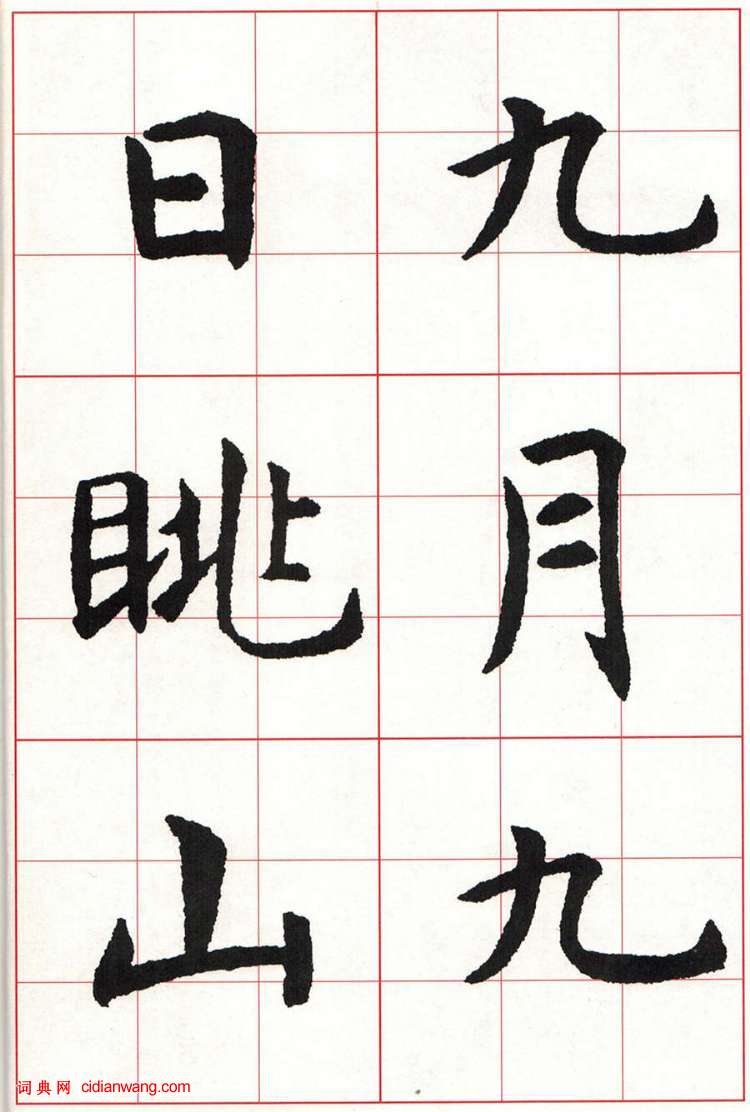 九月九
日眺山
词典网 cidianwang.com